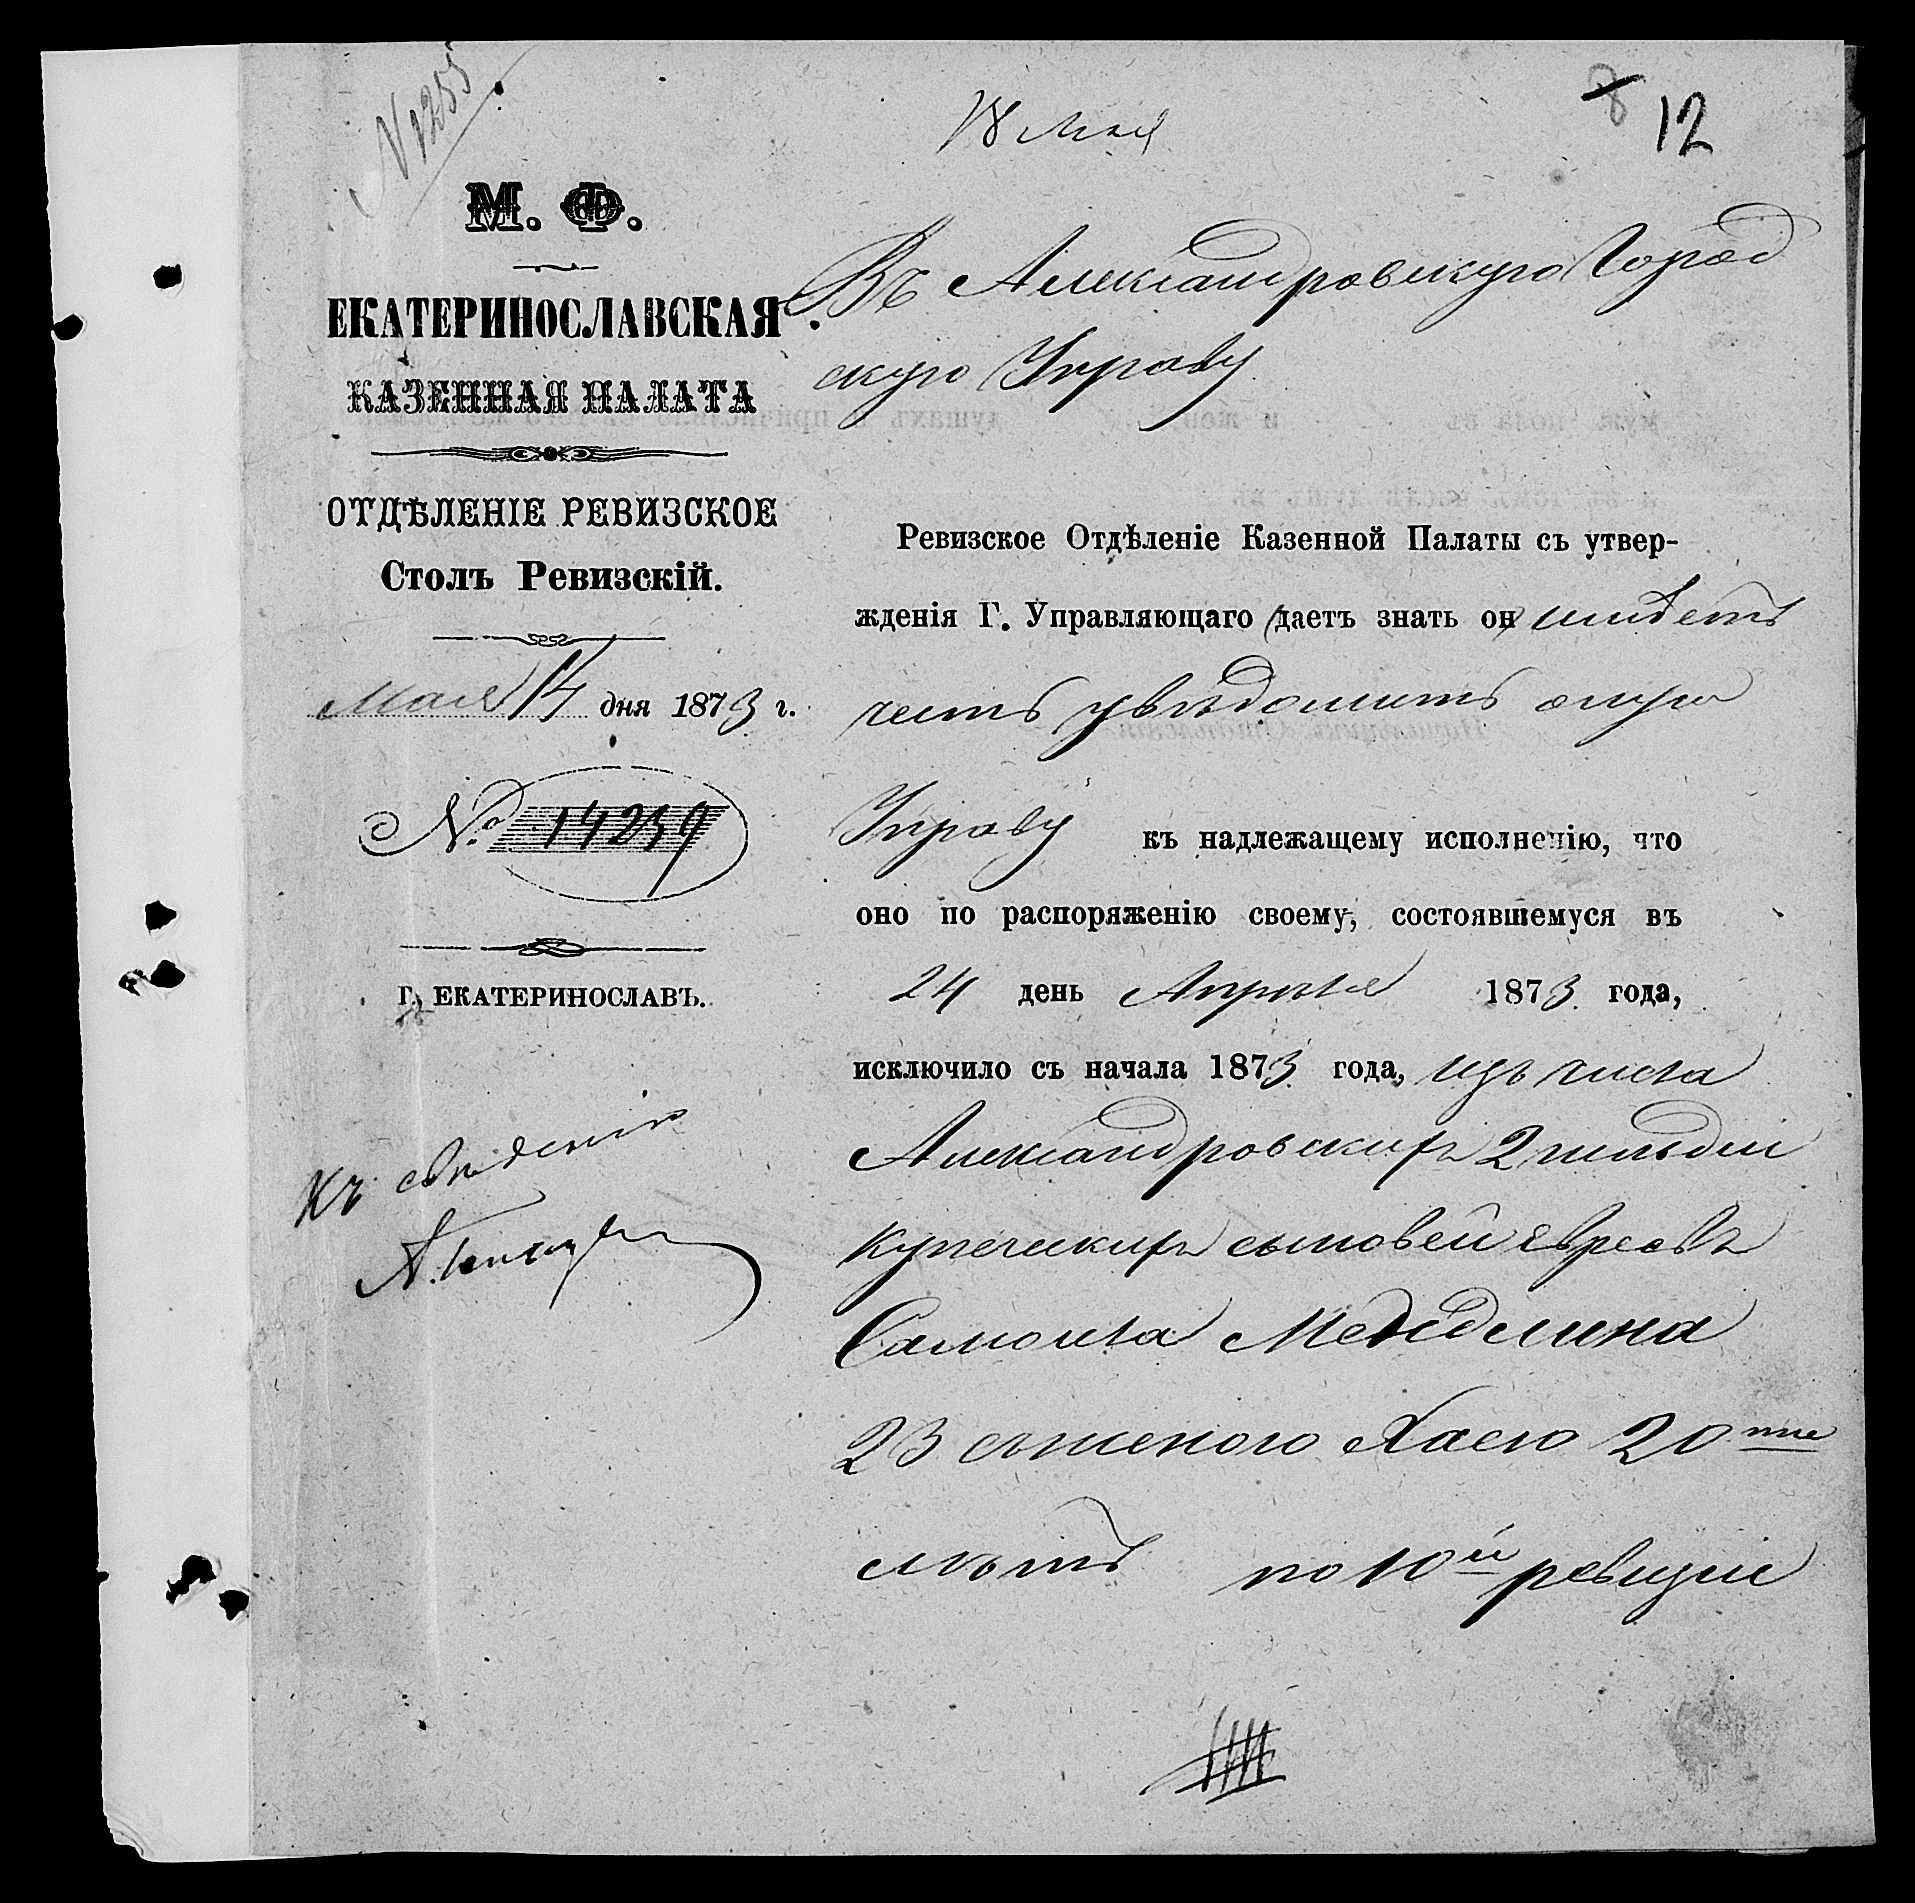 N 1255
18 Мая
8
12
М. Ф.
ЕКАТЕРИНОСЛАВСКАЯ
КАЗЕННАЯ ПАЛАТА
ОТДѢЛЕНІЕ РЕВИЗСКОЕ
Столъ Ревизскій.
Мая 14 дня 1873 г.
№ 14259
Г. ЕКАТЕРИНОСЛАВЪ.
Къ свѣденію
Въ Александровскую Город
скую Управу
Ревизское Отдѣленіе Казенной Палаты съ утвер-
жденія Г. Управляющаго даетъ знать он имѣетъ
честь увѣдомить оную
Управу къ надлежащему исполненію, что
оно по распоряженію своему, состоявшемуся въ
24 день Апрѣля 1873 года,
исключило съ начала 1873 года, изъ числа
Александровскихъ 2 гильдіи
купеческихъ сыновей евреевъ
Самоила Менделина
23 съ женою Хаею 20 ти
лѣтъ по 10й ревизіи